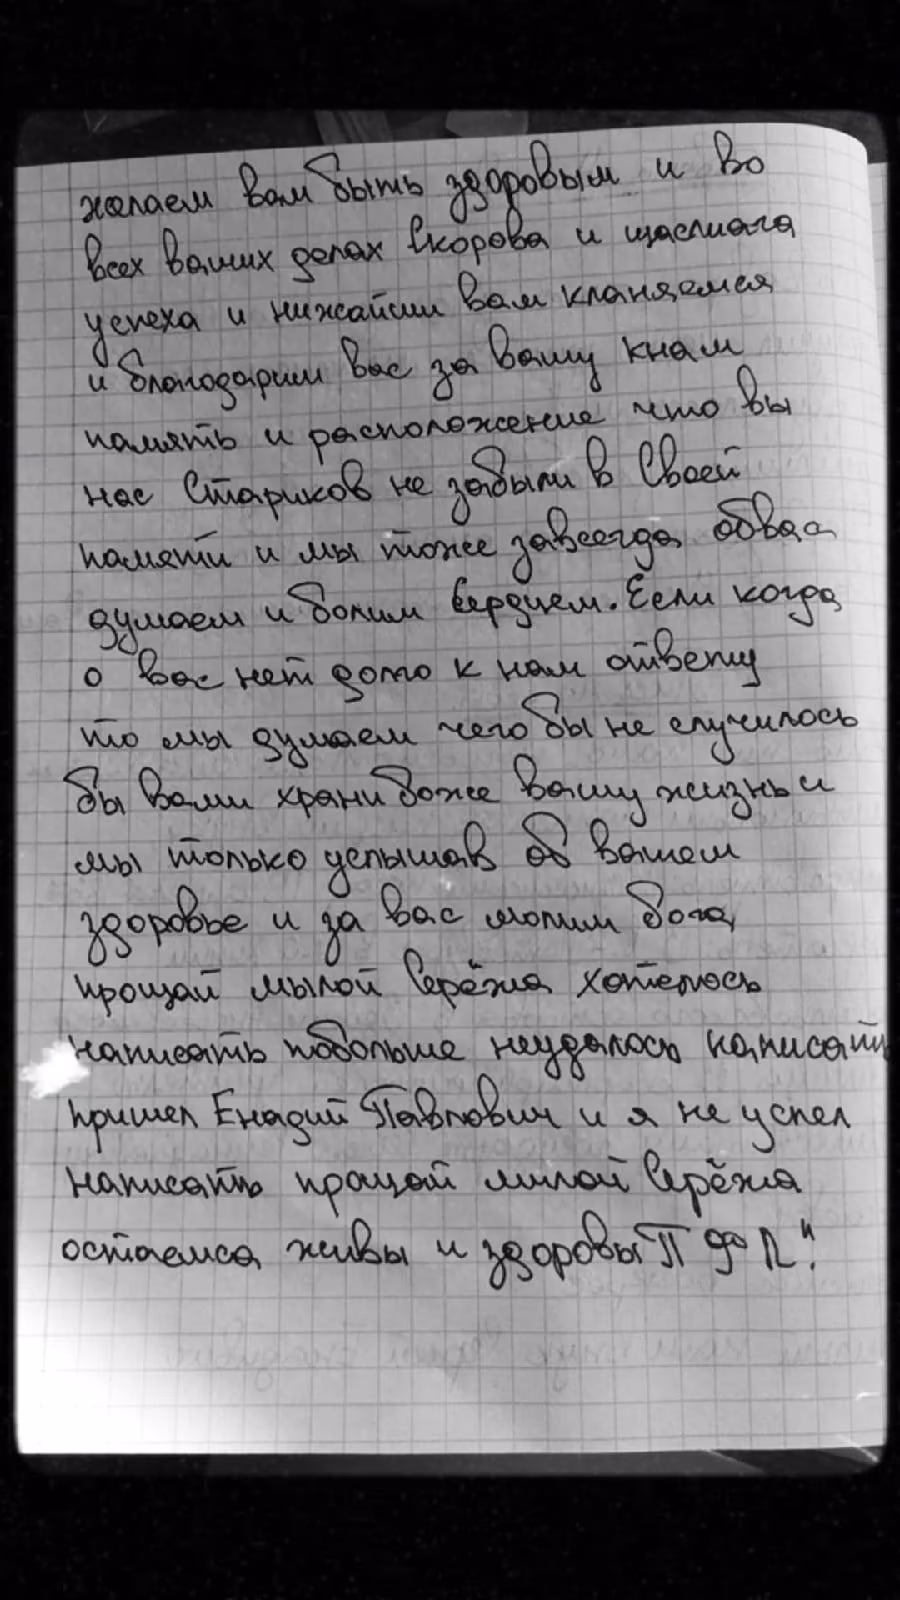 желаем вам быть здоровым и во
всех ваших делах Скорова и щаслиага
успеха и нижайши вам кланяемся
и благодарим вас за вашу кнам
память и расположение что вы
нас Стариков не забыли в Своей
памяти и мы тоже завсегда обвас
думаем и болим Сердцем. Если когда
о вас нет долго к нам ответу
то мы думаем чего бы не случилось
бы вами храни боже вашу жизнь и
мы только услышав об вашем
здоровье и за вас молим бога,
прощай мылой Серёжа хотелось
написать побольше неудалось написать
пришел Енадий Павлович и я не успел
написать прощай милой Серёжа
остаемса живы и здоровы П Ф Л".